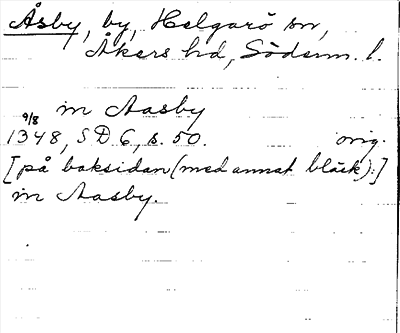 Åsby, by, Helgarö sn,
Åkers hd, Söderm. l.
in Aasby
9/8
1348, SD 6, s. 50. orig.
[på baksidan (med annat bläck):]
in Aasby.